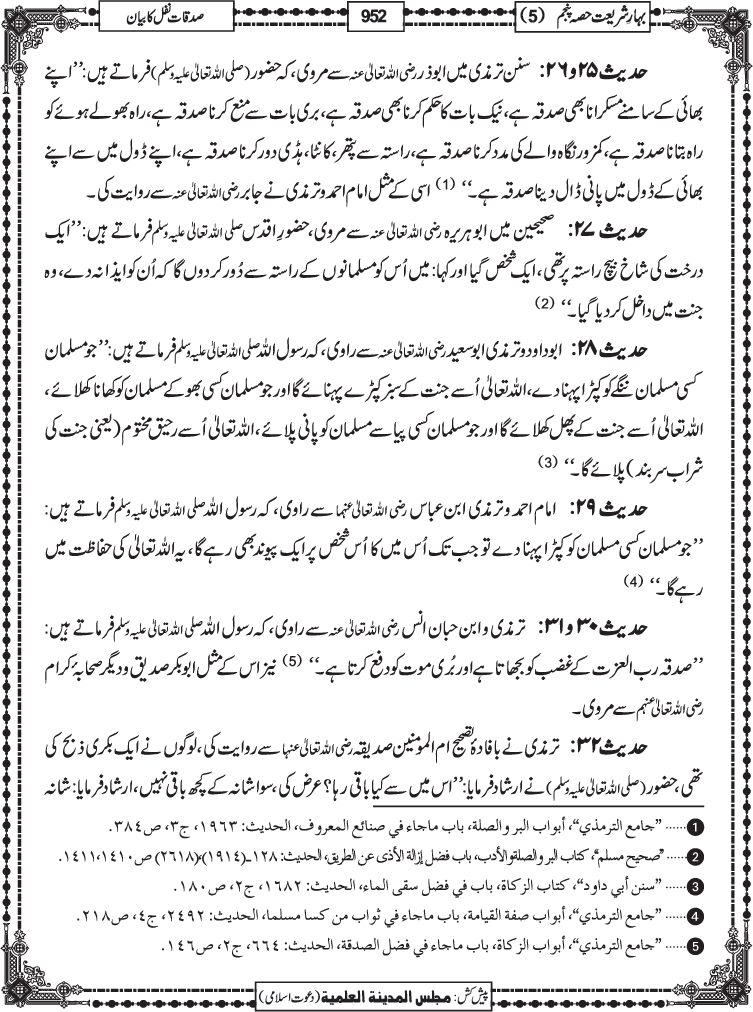 بہارِ شریعت حصہ پنجم (5)
952
صدقات نفل کا بیان
حدیث ۲۵ و ۲۶: سنن ترمذی میں ابوذر رضی اللہ تعالیٰ عنہ سے مروی، کہ حضور (صلی اللہ تعالیٰ علیہ وسلم) فرماتے ہیں: ’’اپنے
بھائی کے سامنے مسکرانا بھی صدقہ ہے، نیک بات کا حکم کرنا بھی صدقہ ہے، بری بات سے منع کرنا صدقہ ہے، راہ بھولے ہوئے کو
راہ بتانا صدقہ ہے، کمزور نگاہ والے کی مدد کرنا صدقہ ہے، راستہ سے پتھر، کانٹا، ہڈی دور کرنا صدقہ ہے، اپنے ڈول میں سے اپنے
بھائی کے ڈول میں پانی ڈال دینا صدقہ ہے۔‘‘ (1) اسی کے مثل امام احمد و ترمذی نے جابر رضی اللہ تعالیٰ عنہ سے روایت کی۔
حدیث ۲۷: صحیحین میں ابوہریرہ رضی اللہ تعالیٰ عنہ سے مروی، حضورِ اقدس صلی اللہ تعالیٰ علیہ وسلم فرماتے ہیں: ’’ایک
درخت کی شاخ بیچ راستہ پر تھی، ایک شخص گیا اور کہا: میں اُس کو مسلمانوں کے راستہ سے دُور کر دوں گا کہ اُن کو ایذا نہ دے، وہ
جنت میں داخل کر دیا گیا۔‘‘ (2)
حدیث ۲۸: ابوداود و ترمذی ابوسعید رضی اللہ تعالیٰ عنہ سے راوی، کہ رسول اللہ صلی اللہ تعالیٰ علیہ وسلم فرماتے ہیں: ’’جو مسلمان
کسی مسلمان ننگے کو کپڑا پہنا دے، اللہ تعالیٰ اُسے جنت کے سبز کپڑے پہنائے گا اور جو مسلمان کسی بھوکے مسلمان کو کھانا کھلائے،
اللہ تعالیٰ اُسے جنت کے پھل کھلائے گا اور جو مسلمان کسی پیاسے مسلمان کو پانی پلائے، اللہ تعالیٰ اُسے رحیق مختوم (یعنی جنت کی
شراب سر بند) پلائے گا۔‘‘ (3)
حدیث ۲۹: امام احمد و ترمذی ابن عباس رضی اللہ تعالیٰ عنہما سے راوی، کہ رسول اللہ صلی اللہ تعالیٰ علیہ وسلم فرماتے ہیں:
’’جو مسلمان کسی مسلمان کو کپڑا پہنا دے تو جب تک اُس میں کا اُس شخص پر ایک پیوند بھی رہے گا، یہ اللہ تعالیٰ کی حفاظت میں
رہے گا۔‘‘ (4)
حدیث ۳۰ و ۳۱: ترمذی و ابن حبان انس رضی اللہ تعالیٰ عنہ سے راوی، کہ رسول اللہ صلی اللہ تعالیٰ علیہ وسلم فرماتے ہیں:
’’صدقہ رب العزت کے غضب کو بجھاتا ہے اور بُری موت کو دفع کرتا ہے۔‘‘ (5) نیز اس کے مثل ابوبکر صدیق و دیگر صحابۂ کرام
رضی اللہ تعالیٰ عنہم سے مروی۔
حدیث ۳۲: ترمذی نے بافادۂ تصحیح ام المومنین صدیقہ رضی اللہ تعالیٰ عنہا سے روایت کی، لوگوں نے ایک بکری ذبح کی
تھی، حضور (صلی اللہ تعالیٰ علیہ وسلم) نے ارشاد فرمایا: ’’اس میں سے کیا باقی رہا؟ عرض کی، سوا شانہ کے کچھ باقی نہیں، ارشاد فرمایا: شانہ
1 ...... ”جامع الترمذي“، أبواب البر والصلة، باب ماجاء في صنائع المعروف، الحديث: ۱۹٦۳، ج۳، ص۳۸٤.
2 ...... ”صحيح مسلم“، كتاب البر والصلة والأدب، باب فضل إزالة الأذى عن الطريق، الحديث: ۱۲۸ـ(۱۹۱٤)،(۲٦۱۸) ص۱٤۱۰،۱٤۱۱.
3 ...... ”سنن أبي داود“، كتاب الزكاة، باب في فضل سقى الماء، الحديث: ۱٦۸۲، ج۲، ص۱۸۰.
4 ...... ”جامع الترمذي“، أبواب صفة القيامة، باب ماجاء في ثواب من كسا مسلما، الحديث: ۲٤۹۲، ج٤، ص۲۱۸.
5 ...... ”جامع الترمذي“، أبواب الزكاة، باب ماجاء في فضل الصدقة، الحديث: ٦٦٤، ج۲، ص۱٤٦.
پیش کش: مجلس المدينة العلمية (دعوت اسلامی)